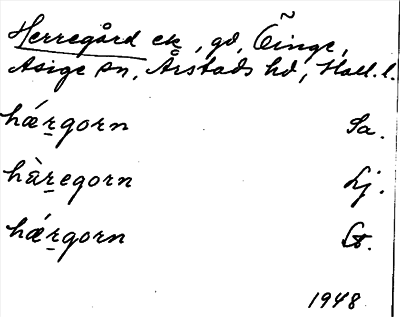 Herregård ek, gd, Õinge,
Asige sn, Årstads hd, Hall. l.
hǽrgorn Sa.
hàregorn Lj.
hǽrgorn
1948